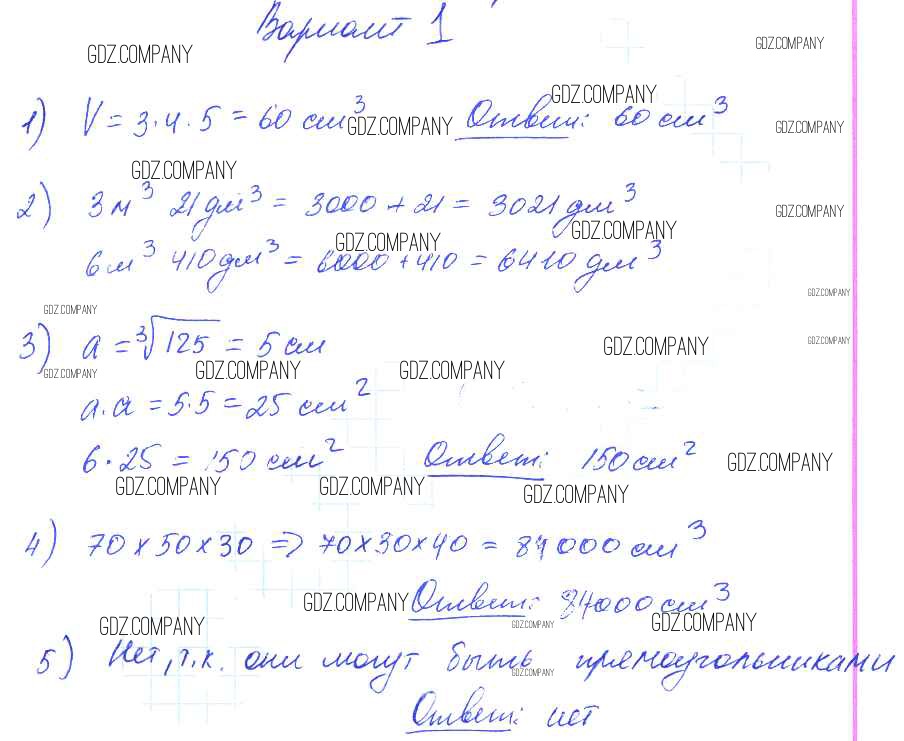 Вариант 1
GDZ.COMPANY GDZ.COMPANY
GDZ.COMPANY
1) V = 3·4·5 = 60 см³ Ответ: 60 см³
GDZ.COMPANY GDZ.COMPANY
GDZ.COMPANY
2) 3 м³ 21 дм³ = 3000 + 21 = 3021 дм³
GDZ.COMPANY
GDZ.COMPANY GDZ.COMPANY
6 м³ 410 дм³ = 6000 + 410 = 6410 дм³
GDZ.COMPANY
GDZ.COMPANY
3) a = ∛125 = 5 см
GDZ.COMPANY GDZ.COMPANY
GDZ.COMPANY GDZ.COMPANY GDZ.COMPANY
a·a = 5·5 = 25 см²
6·25 = 150 см² Ответ: 150 см²
GDZ.COMPANY
GDZ.COMPANY GDZ.COMPANY GDZ.COMPANY
4) 70 x 50 x 30 => 70 x 30 x 40 = 84000 см³
Ответ: 84000 см³
GDZ.COMPANY
GDZ.COMPANY GDZ.COMPANY GDZ.COMPANY
5) Нет, т.к. они могут быть прямоугольниками
GDZ.COMPANY
Ответ: нет